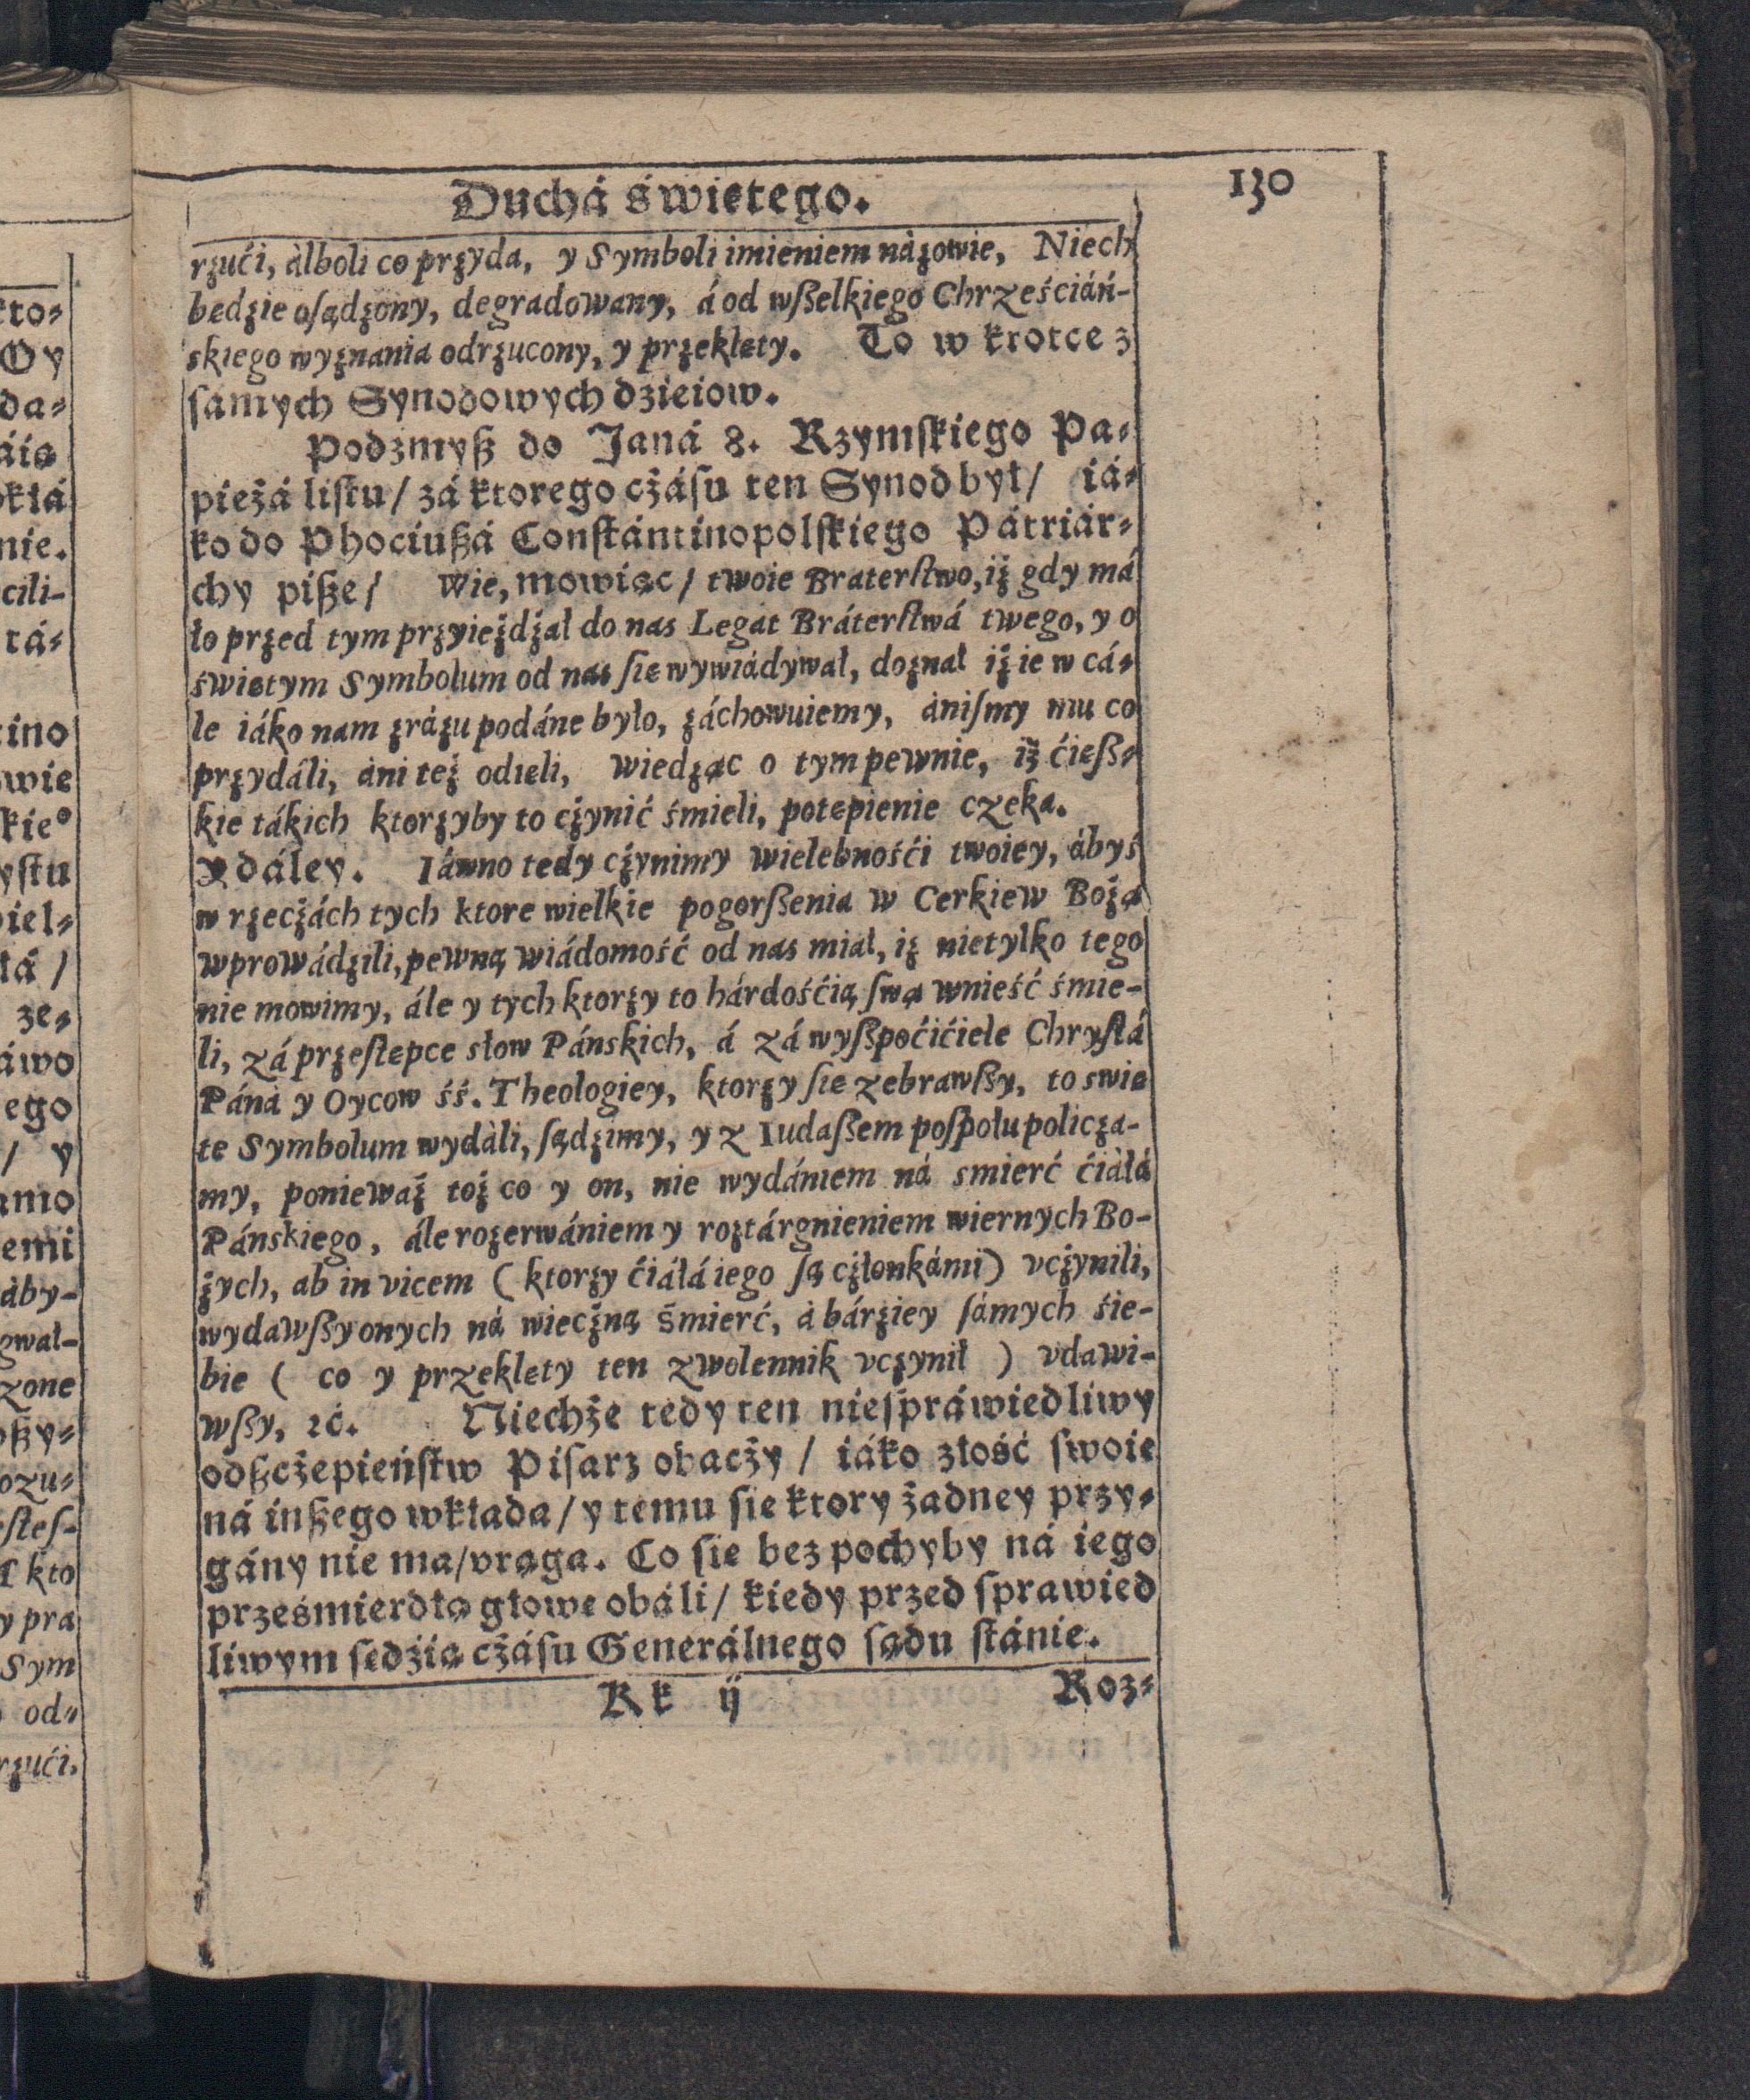 Duchá świętego. 130
rzući, álboli co przyda, y Symboli imieniem názowie, Niech
będzie osądzony, degradowany, á od wßelkiego Chrześciáń-
skiego wyznania odrzucony, y przeklęty. To w krotce z
sámych Synodowych dzieiow.
Podzmyß do Janá 8. Rzymskiego Pa-
pieżá listu / zá ktorego cżásu ten Synod był / iá-
ko do Phociußá Constántinopolskiego Pátriár-
chy piße / Wie, mowiąc / twoie Braterstwo, iż gdy má
ło przed tym przyieżdżał do nas Legat Bráterstwá twego, y o
świętym Symbolum od nas się wywiádywał, doznał iż ie w cá-
le iáko nam zrázu podáne było, záchowuiemy, ánismy mu co
przydáli, áni też odięli, wiedząc o tym pewnie, iż ćięß-
kie tákich ktorzyby to cżynić śmieli, potępienie czeka.
Y dáley. Iáwno tedy cżynimy wielebnośći twoiey, ábyś
w rzecżách tych ktore wielkie pogorßenia w Cerkiew Bożą
wprowádzili, pewną wiádomość od nas miał, iż nietylko tego
nie mowimy, ále y tych ktorzy to hárdośćią swą wnieść śmie-
li, zá przestępce słow Páńskich, á zá wyßpoćićiele Chrystá
Páná y Oycow śś. Theologiey, ktorzy się zebrawßy, to swię
te Symbolum wydáli, sądzimy, y z Iudaßem pospołu policza-
my, ponieważ toż co y on, nie wydániem ná smierć ćiáłá
Páńskiego, ále rozerwániem y roztárgnieniem wiernych Bo-
żych, ab in vicem ( ktorzy ćiáłá iego są cżłonkámi ) vcżynili,
wydawßy onych ná wiecżną śmierć, á bárziey sámych śie-
bie ( co y przeklęty ten zwolennik vczynił ) vdawi-
wßy, ꝛć. Niechże tedy ten niespráwiedliwy
odßcżepieństw Pisarz obacży / iáko złość swoię
ná inßego wkłada / y temu się ktory żadney przy-
gány nie ma / vrąga. Co się bez pochyby ná iego
prześmierdłą głowę obáli / kiedy przed sprawied
liwym sędźią cżásu Generálnego sądu stánie.
Kk ij Roz-